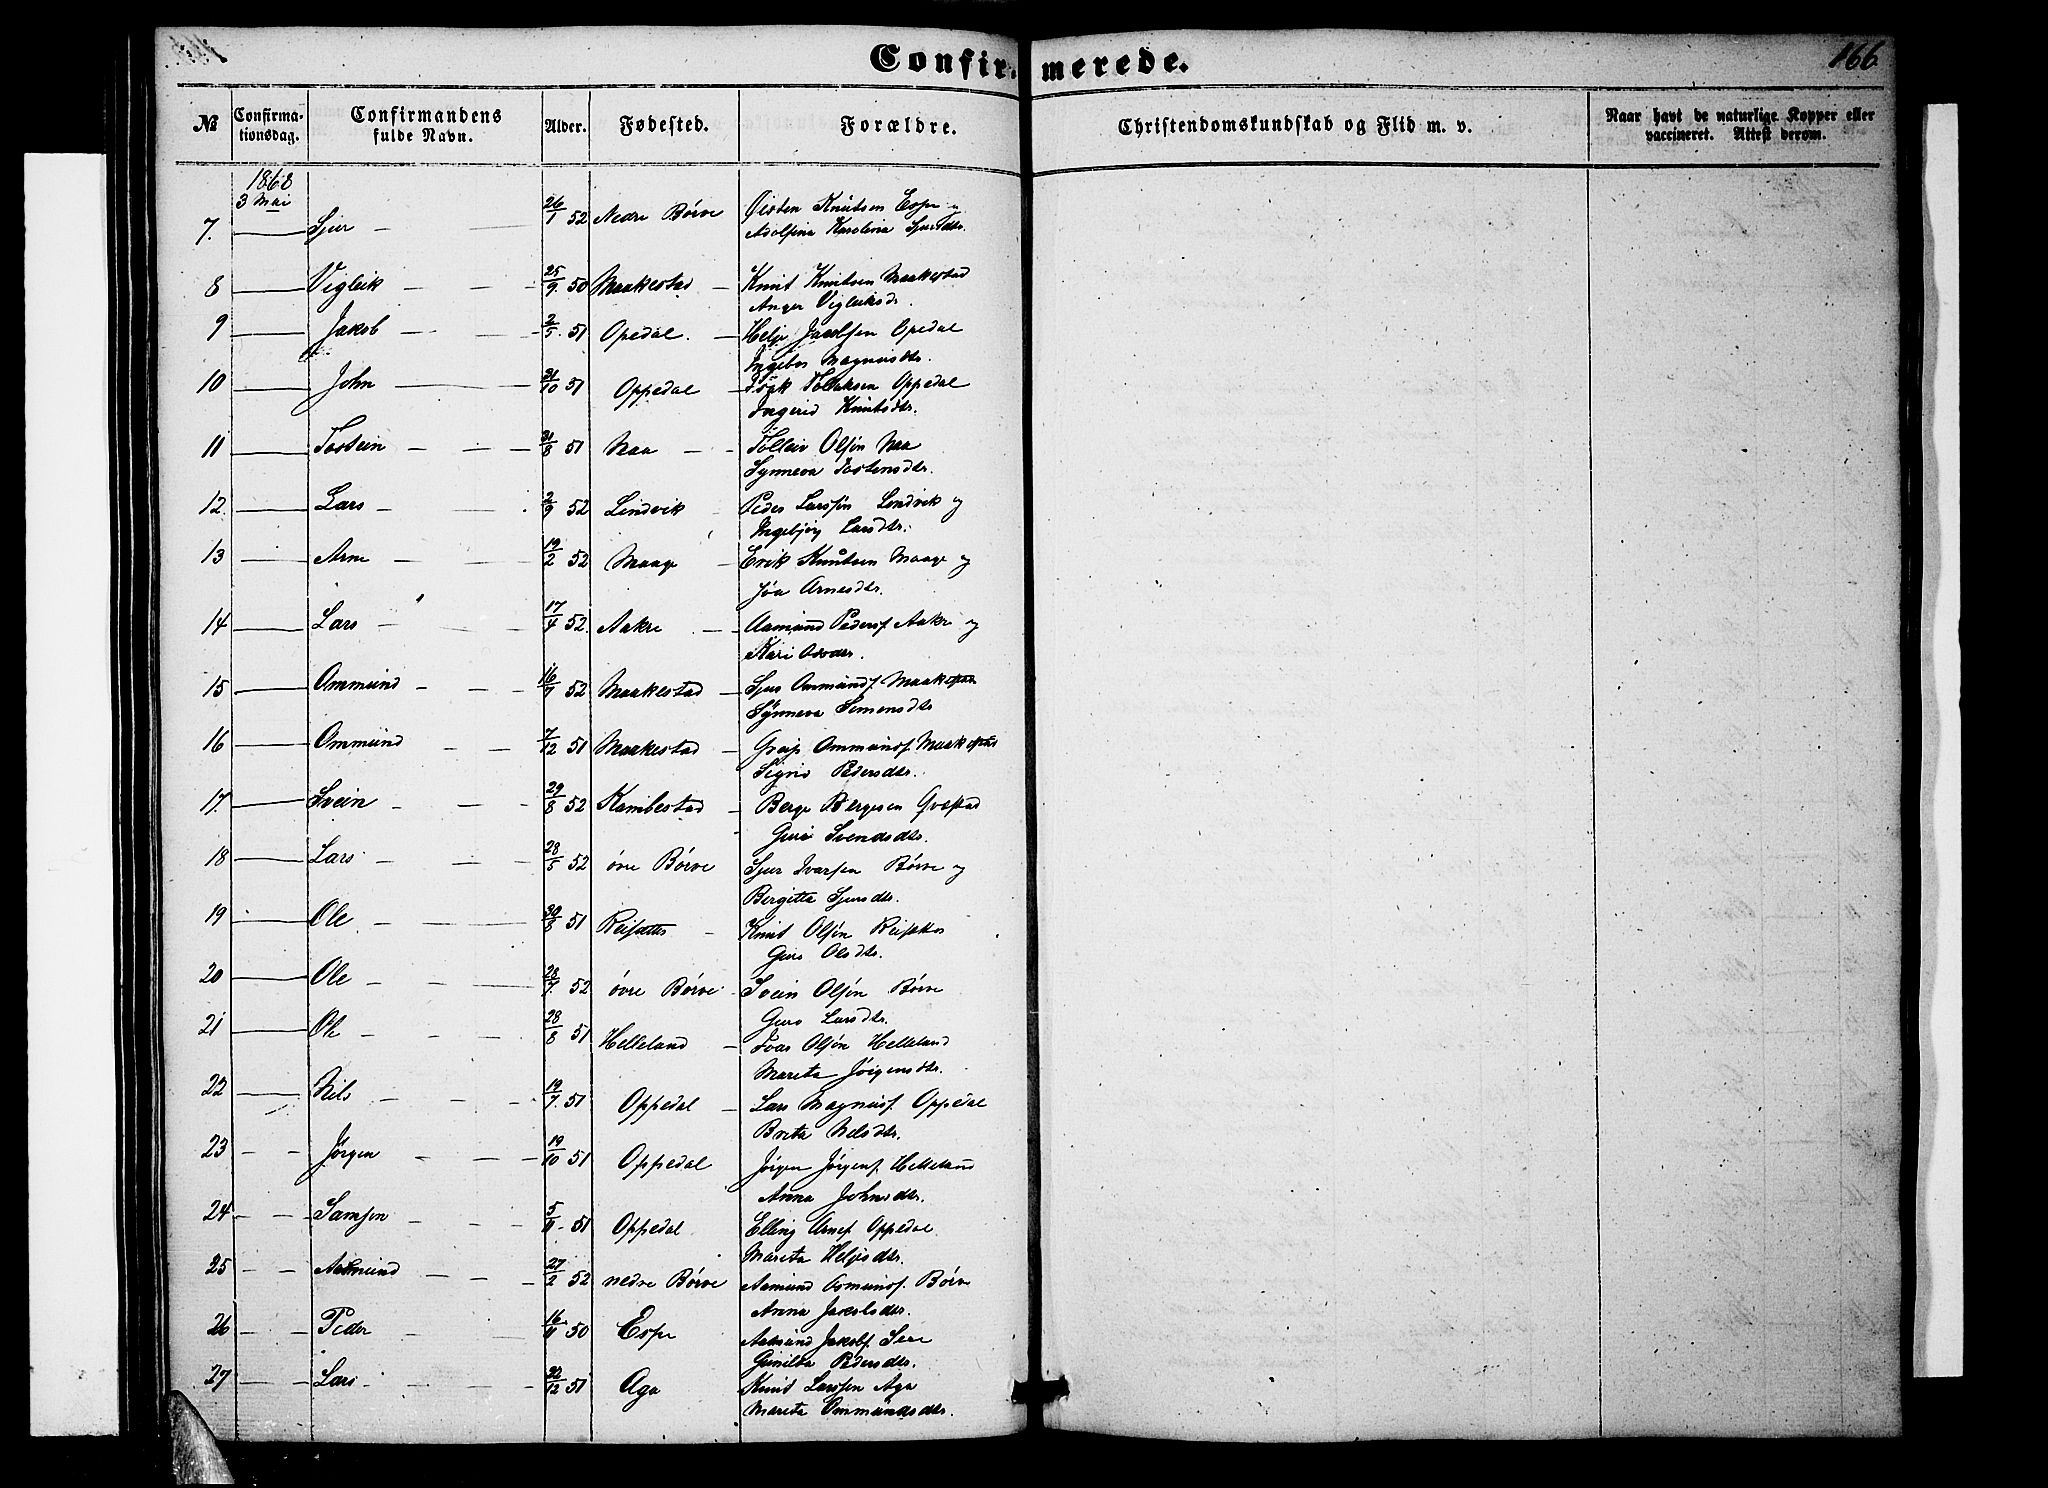 Confirmerede.
166
№ Confirmationsdag. Confirmandens fulde Navn. Alder. Fødested. Forældre. Christendomskundskab og Flid m. v. Naar havt de naturlige Kopper eller vaccineret. Attest derom.
1868
3 Mai
7. Sjur 26/1 52 Nedre Börve Östen Knutsen Espe
Adolfina Karolina Sjursdtr.
8 Vigleik 25/9 50 Maakestad Knut Knutsen Maakestad
Anger Vigleiksdr.
9 Jakob 2/5 51 Opedal. Helje Jacobsen Opedal
Ingebor Magnusdtr.
10 John 31/10 51 Oppedal Tollaksen Oppedal
Ingerid Knutsdtr.
11 Tostein 31/8 51 Naa Tolleiv Olsön Naa
Synneva Tostensdtr.
12. Lars 2/9 52 Lindvik Peder Larssön Lindvik og
Ingebjörg Larsdtr.
13 Arne 19/2 52 Maage Erik Knutsen Maage og
Jóa Arnesdtr.
14 Lars 17/4 52. Aakre Aamund Pedersf Aakre og
Kari
15 Ommund 16/7 52 Maakestad Sjur Ommundf. Maakestad
Synneva Simensdtr
16 Ommund 7/12 51 Maakestad Greip Ommundsf. Maakestad
Sigrid Pedersdtr.
17. Svein 29/8 52 Kambestad Berge Bergesen
Guri Svendsdtr.
18 Lars 28/5 52 övre Börve Sjur Ivarsen Börve og
Bergitta Sjursdtr.
19 Ole 30/8 51 Reisæter Knut Olsön Reisæter
Guro Olsdtr.
20 Ole 28/7. 52 övre Börve Svein Olsön Börve
Guro Larsdtr.
21 Ole 28/8 51 Helleland Ivar Olsön Helleland
Marita Jörgensdtr.
22 Nils 19/7. 51 Oppedal Lars Magnusf. Oppedal
Brita Nelsdtr.
23 Jörgen 19/10 51 Oppedal Jörgen Jörgenf. Helleland
Anna Johnsdtr.
24 Samson 5/11 51 Oppedal Elling Arnef Oppedal
Marita Heljesdtr.
25 Aamund 27/2 52 nedre Börve Aamund Osmundsf. Börve
Anna Jakobsdtr.
26 Peder 16/11 50 Espe Aamund Jakobf.
Gunilda Pedersdtr.
27 Lars 22/12 51 Aga Knut Larssen Aga
Marita Ommundsdtr.